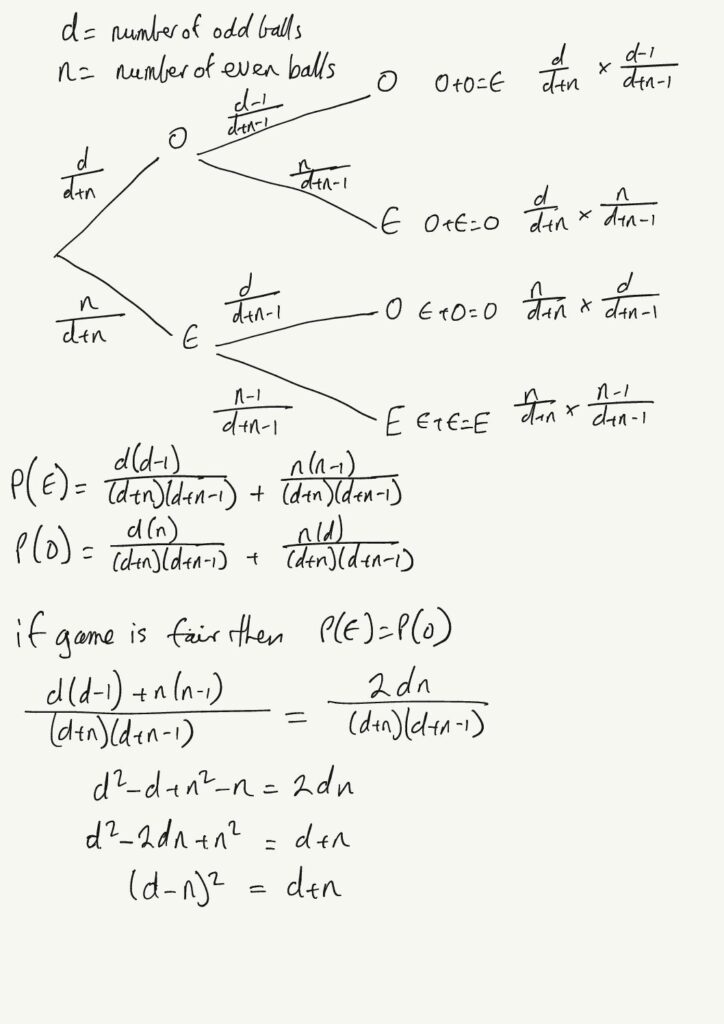 d = number of odd balls
n = number of even balls
d/d+n
O
d-1/d+n-1
O O+O=E d/d+n × d-1/d+n-1
n/d+n-1
E O+E=O d/d+n × n/d+n-1
n/d+n
E
d/d+n-1
O E+O=O n/d+n × d/d+n-1
n-1/d+n-1
E E+E=E n/d+n × n-1/d+n-1
P(E) = d(d-1)/(d+n)(d+n-1) + n(n-1)/(d+n)(d+n-1)
P(O) = d(n)/(d+n)(d+n-1) + n(d)/(d+n)(d+n-1)
if game is fair then P(E)=P(O)
d(d-1)+n(n-1)/(d+n)(d+n-1) = 2dn/(d+n)(d+n-1)
d²-d+n²-n = 2dn
d²-2dn+n² = d+n
(d-n)² = d+n